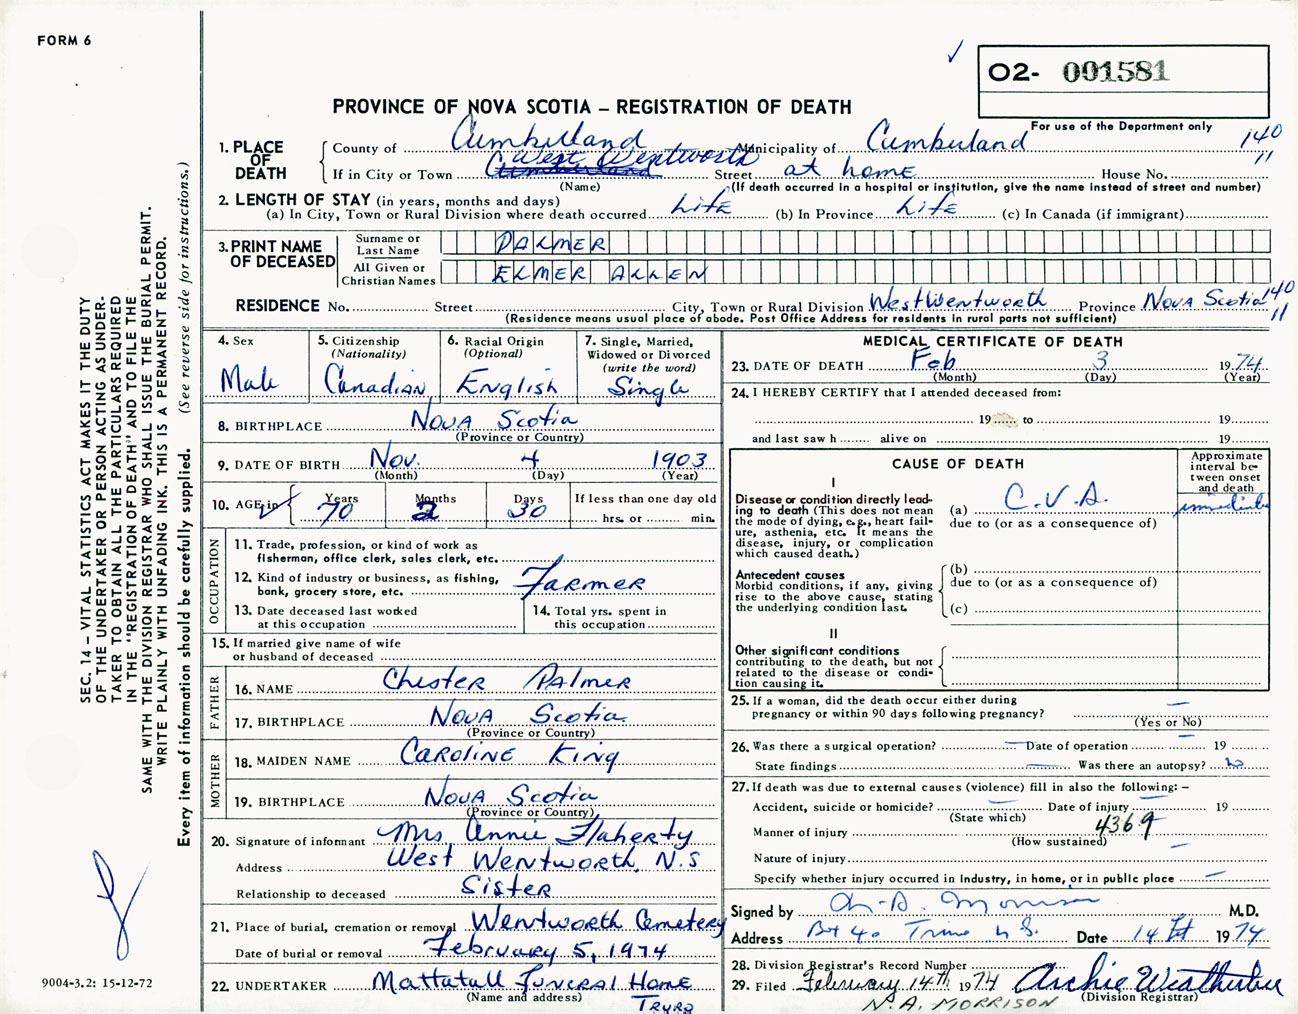 FORM 6
O2- 001581
PROVINCE OF NOVA SCOTIA – REGISTRATION OF DEATH
For use of the Department only
1. PLACE OF DEATH
County of Cumberland Municipality of Cumberland 140
11
If in City or Town Cumberland West Wentworth Street at home House No.
(Name) (If death occurred in a hospital or institution, give the name instead of street and number)
2. LENGTH OF STAY (in years, months and days)
(a) In City, Town or Rural Division where death occurred Life (b) In Province Life (c) In Canada (if immigrant)
3. PRINT NAME OF DECEASED
Surname or Last Name PALMER
All Given or Christian Names ELMER ALLEN
RESIDENCE No. Street City, Town or Rural Division West Wentworth Province Nova Scotia 140
11
(Residence means usual place of abode. Post Office Address for residents in rural parts not sufficient)
4. Sex
Male
5. Citizenship
(Nationality)
Canadian
6. Racial Origin
(Optional)
English
7. Single, Married,
Widowed or Divorced
(write the word)
Single
8. BIRTHPLACE Nova Scotia
(Province or Country)
9. DATE OF BIRTH Nov. 4 1903
(Month) (Day) (Year)
10. AGE in
Years 70
Months 2
Days 30
If less than one day old
hrs. or min.
OCCUPATION
11. Trade, profession, or kind of work as
fisherman, office clerk, sales clerk, etc.
12. Kind of industry or business, as fishing,
bank, grocery store, etc. Farmer
13. Date deceased last worked
at this occupation
14. Total yrs. spent in
this occupation
15. If married give name of wife
or husband of deceased
FATHER
16. NAME Chester Palmer
17. BIRTHPLACE Nova Scotia
(Province or Country)
MOTHER
18. MAIDEN NAME Caroline King
19. BIRTHPLACE Nova Scotia
(Province or Country)
20. Signature of informant Mrs Annie Flaherty
Address West Wentworth, N.S
Relationship to deceased Sister
21. Place of burial, cremation or removal Wentworth Cemetery
Date of burial or removal February 5, 1974
22. UNDERTAKER Mattatall Funeral Home
(Name and address) Truro
MEDICAL CERTIFICATE OF DEATH
23. DATE OF DEATH Feb 3 1974
(Month) (Day) (Year)
24. I HEREBY CERTIFY that I attended deceased from:
19 to 19
and last saw h alive on 19
CAUSE OF DEATH
Approximate
interval be-
tween onset
and death
I
Disease or condition directly lead-
ing to death (This does not mean
the mode of dying, e.g., heart fail-
ure, asthenia, etc. It means the
disease, injury, or complication
which caused death.)
(a) C.V.A. immediate
due to (or as a consequence of)
Antecedent causes
Morbid conditions, if any, giving
rise to the above cause, stating
the underlying condition last.
(b)
due to (or as a consequence of)
(c)
II
Other significant conditions
contributing to the death, but not
related to the disease or condi-
tion causing it.
25. If a woman, did the death occur either during
pregnancy or within 90 days following pregnancy? —
(Yes or No)
26. Was there a surgical operation? — Date of operation — 19
State findings — Was there an autopsy? no
27. If death was due to external causes (violence) fill in also the following: –
Accident, suicide or homicide? — Date of injury — 19
(State which)
Manner of injury 4369
(How sustained)
Nature of injury —
Specify whether injury occurred in industry, in home, or in public place —
Signed by N. A. Morrison M.D.
Address Box 40 Truro N.S. Date 14 Feb 1974
28. Division Registrar's Record Number
29. Filed February 14th 1974 Archie Weatherbee
(Division Registrar)
N.A. MORRISON
SEC. 14 – VITAL STATISTICS ACT MAKES IT THE DUTY
OF THE UNDERTAKER OR PERSON ACTING AS UNDER-
TAKER TO OBTAIN ALL THE PARTICULARS REQUIRED
IN THE "REGISTRATION OF DEATH" AND TO FILE THE
SAME WITH THE DIVISION REGISTRAR WHO SHALL ISSUE THE BURIAL PERMIT.
WRITE PLAINLY WITH UNFADING INK. THIS IS A PERMANENT RECORD.
Every item of information should be carefully supplied. (See reverse side for instructions.)
9004-3.2: 15-12-72